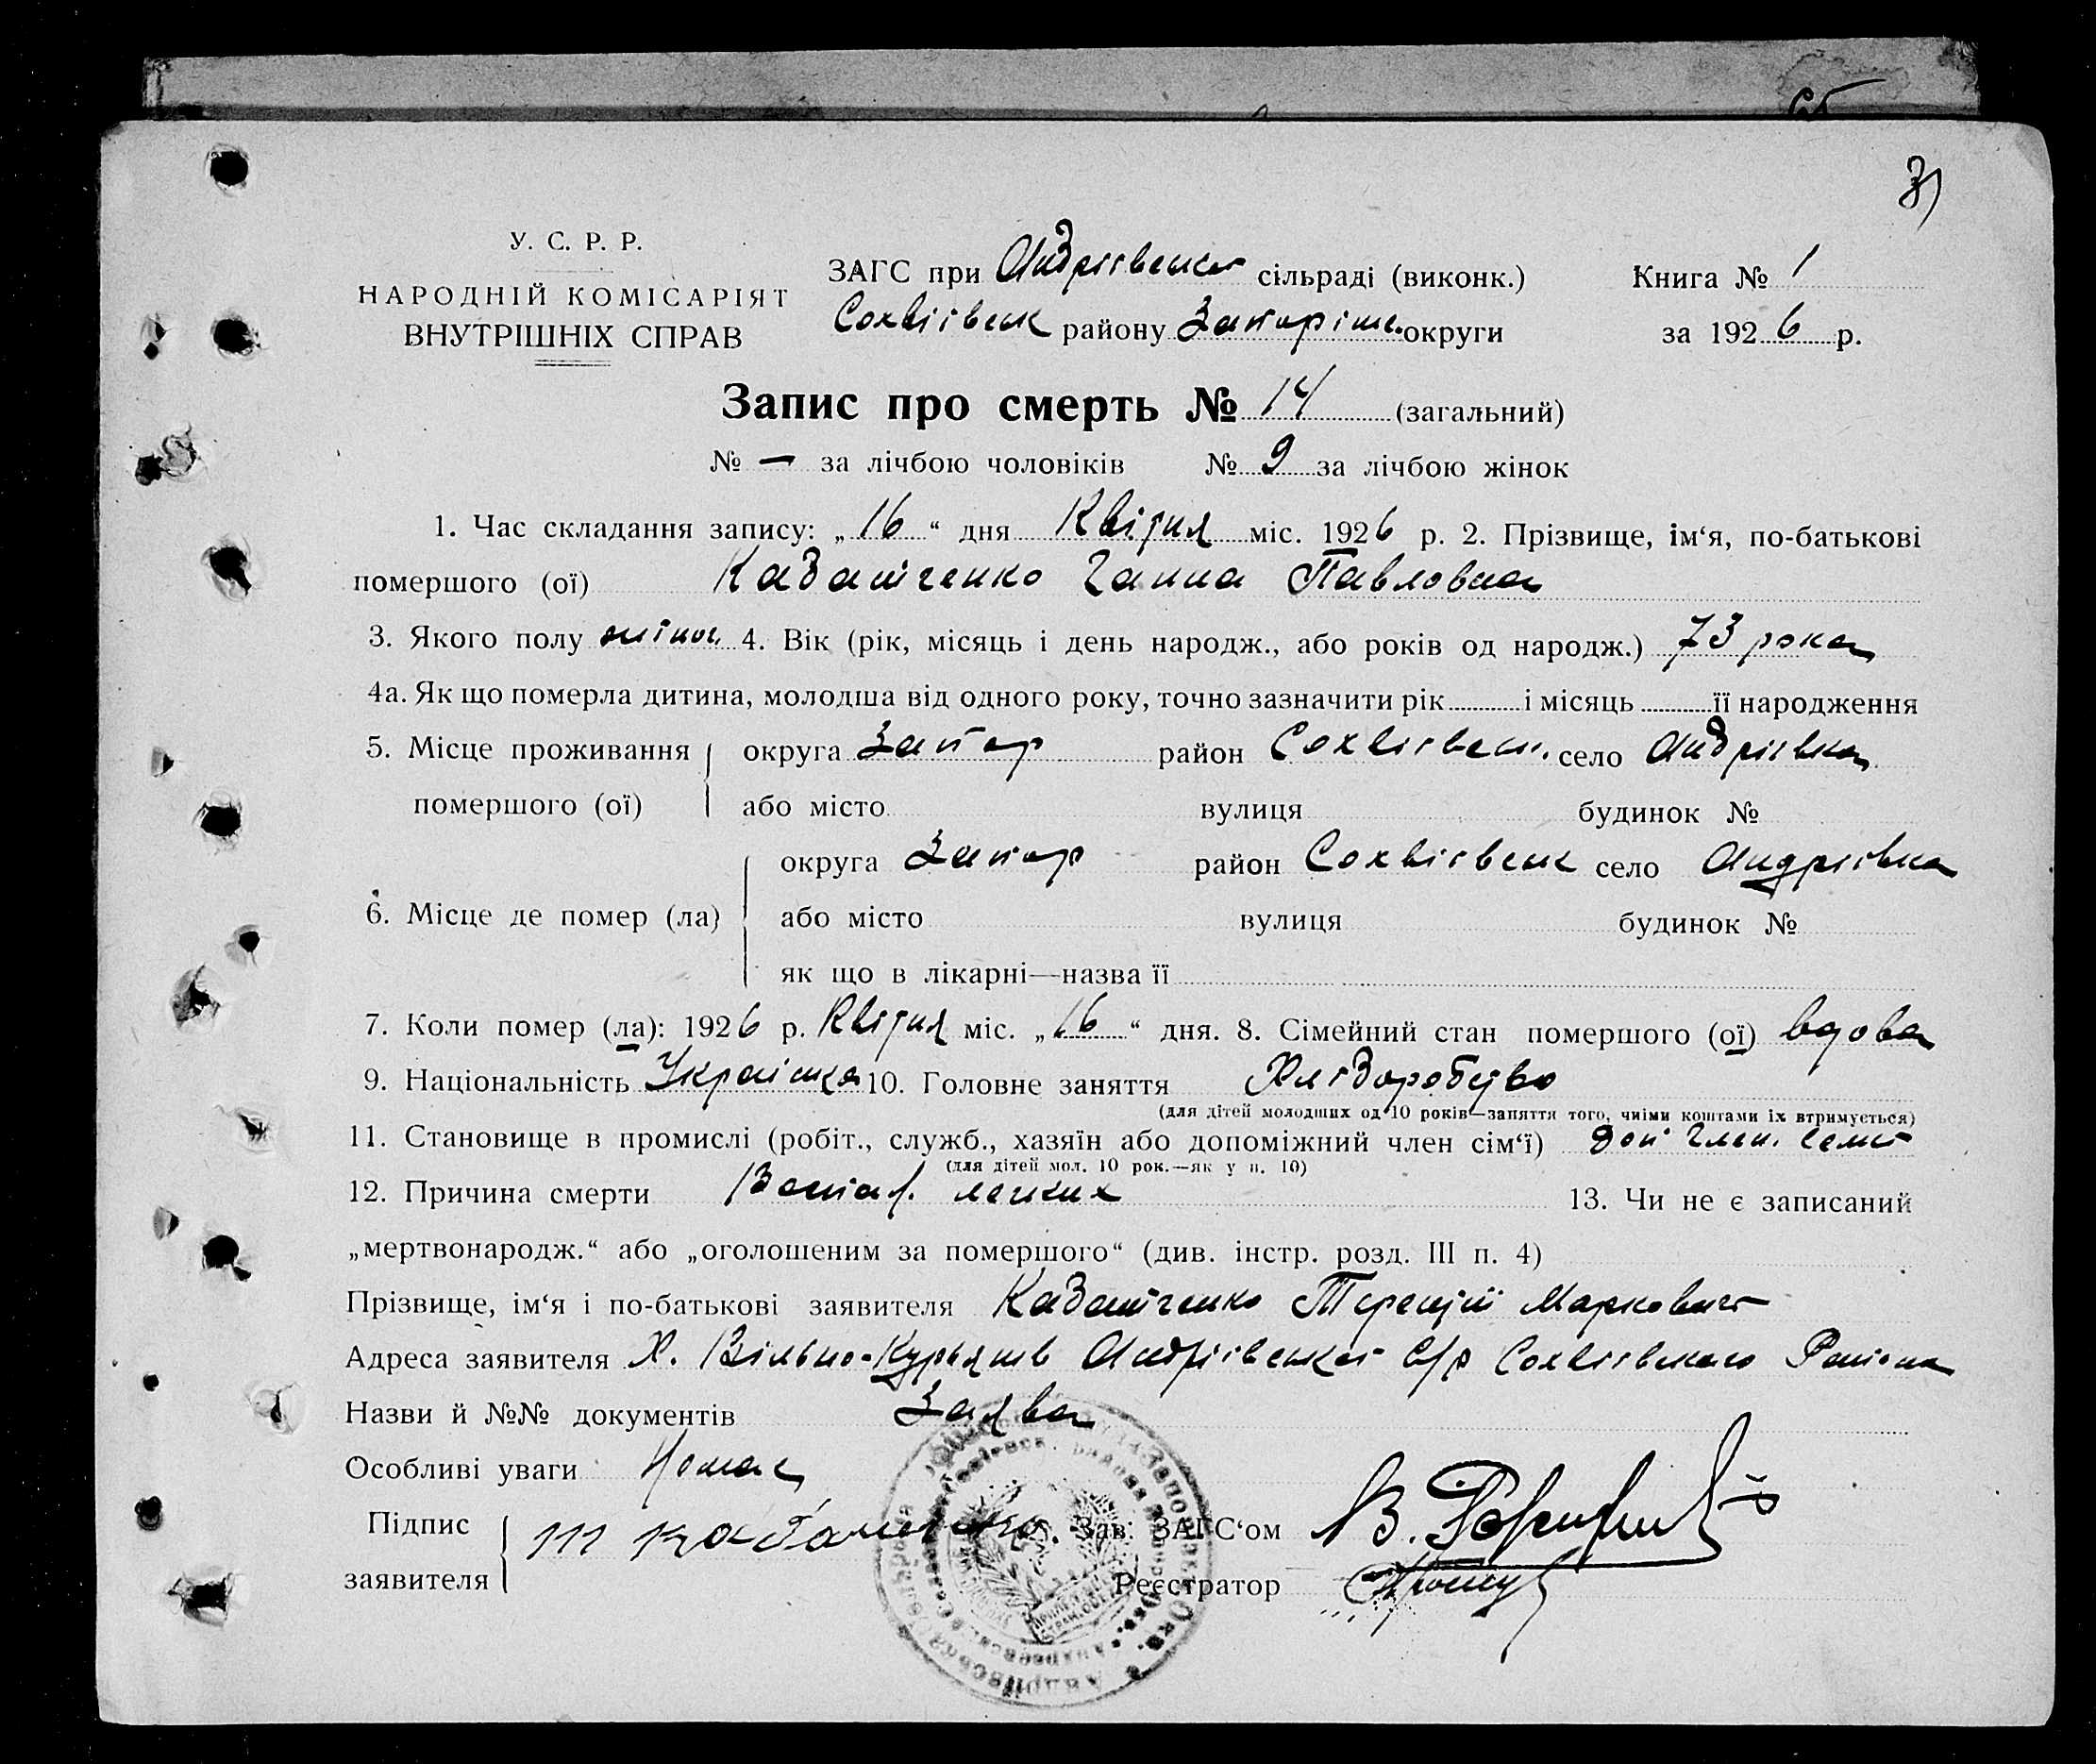 31
У. С. Р. Р.
НАРОДНІЙ КОМІСАРІЯТ
ВНУТРІШНІХ СПРАВ
ЗАГС при Андріївська сільраді (виконк.)
Софіївськ району Запоріш. округи
Книга № 1
за 1926 р.
Запис про смерть № 14 (загальний)
№ — за лічбою чоловіків № 9 за лічбою жінок
1. Час складання запису: „16“ дня Квітня міс. 1926 р. 2. Прізвище, ім‘я, по-батькові
помершого (ої) Кабатченко Ганна Павловна
3. Якого полу жіноч. 4. Вік (рік, місяць і день народж., або років од народж.) 73 рока
4а. Як що померла дитина, молодша від одного року, точно зазначити рік і місяць її народження
5. Місце проживання округа Запор район Сохвіївськ. село Андріївка
помершого (ої) або місто вулиця будинок №
округа Запор район Сохвіївськ село Андріївка
6. Місце де помер (ла) або місто вулиця будинок №
як що в лікарні—назва її
7. Коли помер (ла): 1926 р. Квітня міс. „16“ дня. 8. Сімейний стан помершого (ої) вдова
9. Національність Українка 10. Головне заняття Хліборобство
(для дітей молодших од 10 років—заняття того, чиїми коштами їх втримується)
11. Становище в промислі (робіт., служб., хазяїн або допоміжний член сім‘ї) доп член. семї
(для дітей мол. 10 рок.—як у п. 10)
12. Причина смерти Воспал. легких 13. Чи не є записаний
„мертвонародж.“ або „оголошеним за помершого“ (див. інстр. розд. III п. 4)
Прізвище, ім‘я і по-батькові заявителя Кабатченко Терентій Маркович
Адреса заявителя Х. Вільно-Андріївської С/р Сохвіївського Району
Назви й №№ документів Заява
Особливі уваги Немає
Підпис Т Кабатченко Зав. ЗАГС‘ом
заявителя Реєстратор